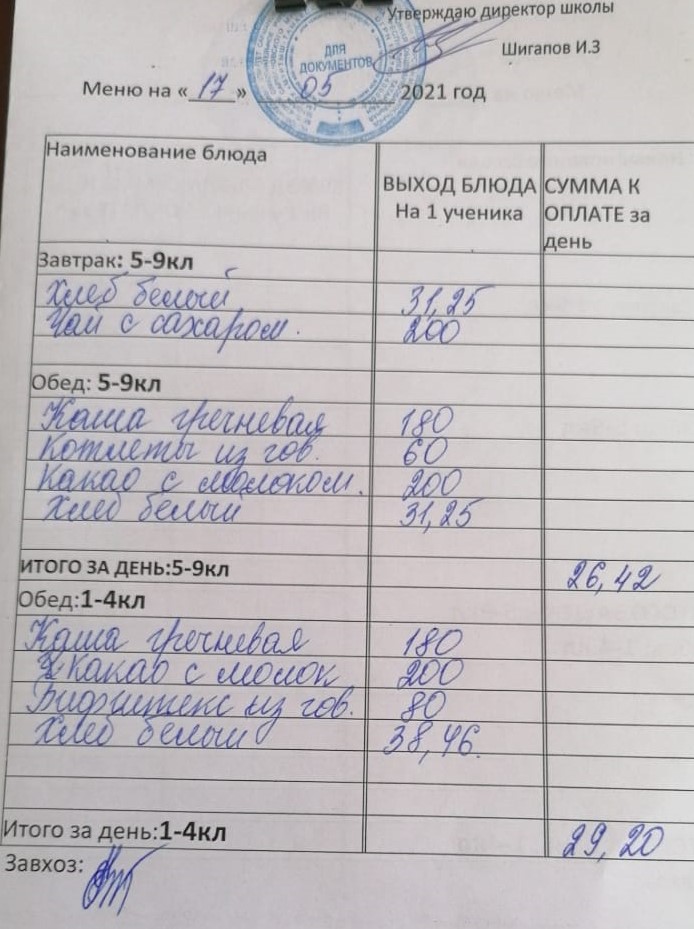 Утверждаю директор школы
Шигапов И.З
ДЛЯ
ДОКУМЕНТОВ
Меню на «17» 05 2021 год
Наименование блюда
ВЫХОД БЛЮДА СУММА К
На 1 ученика ОПЛАТЕ за
день
Завтрак: 5-9кл
Хлеб белый 31,25
Чай с сахаром. 200
Обед: 5-9кл
Каша гречневая 180
Котлеты из гов. 60
Какао с молоком. 200
Хлеб белый 31,25
ИТОГО ЗА ДЕНЬ:5-9кл 26,42
Обед:1-4кл
Каша гречневая 180
Какао с молок 200
Бифштекс из гов. 80
Хлеб белый 38,46.
Итого за день:1-4кл 29,20
Завхоз: